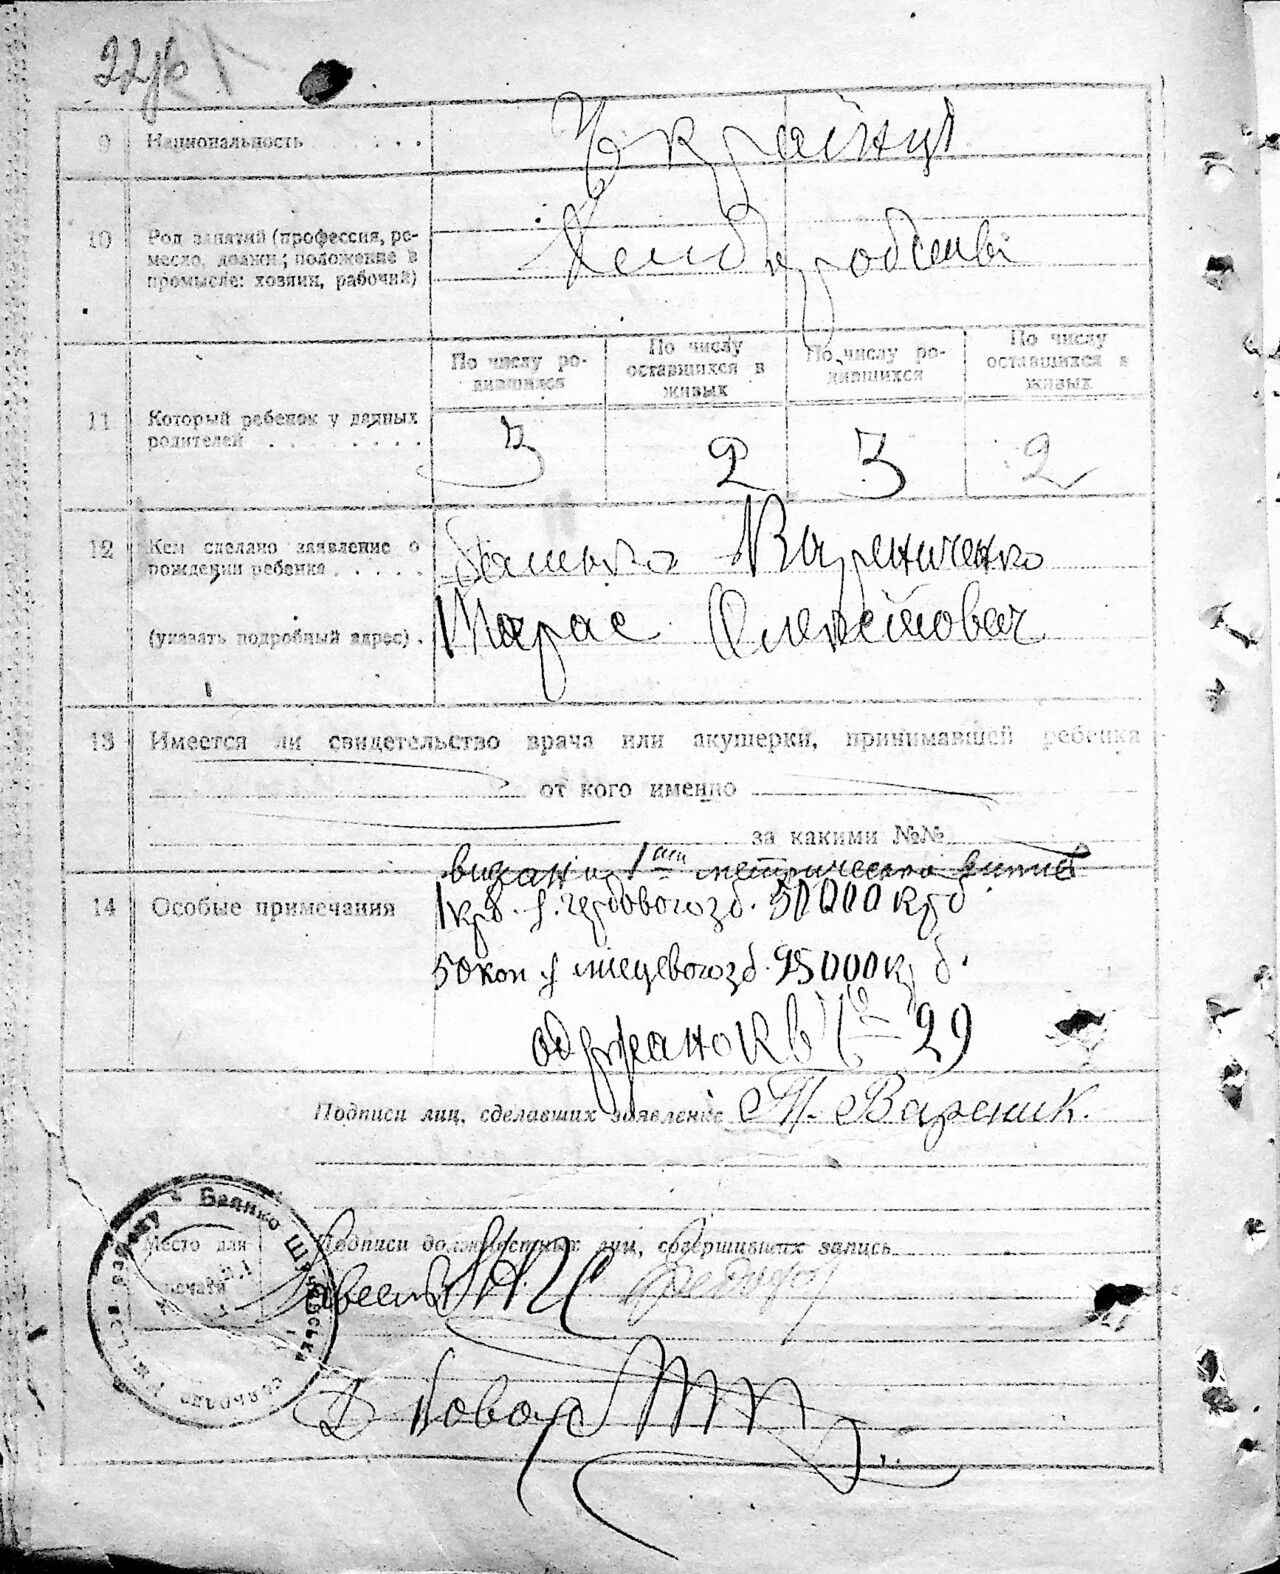 9 Национальность . . . . . . Українці
10 Род занятий (профессия, ре-
месло, должн; положение в
промысле: хозяин, рабочий)
Хлібороби
По числу ро-
дившихся
По числу
оставшихся в
живых
По числу ро-
дившихся
По числу
оставшихся в
живых
11 Который ребенок у данных
родителей . . . . . . . .
3 2 3 2
12 Кем сделано заявление о
рождении ребенка . . . . .
батько Варениченко
(указать подробный адрес) .
Тарас Олексійович
13 Имеется ли свидетельство врача или акушерки, принимавшей ребенка
от кого именно
за какими №№
14 Особые примечания
1 крб. гербового зб. 50000 крб
50 коп місцевого зб. 95000 крб.
одержано кв 29
Подписи лиц, сделавших заявление Т. Вареник.
Подписи должностных лиц, совершивших запись
Место для
печати
Велико